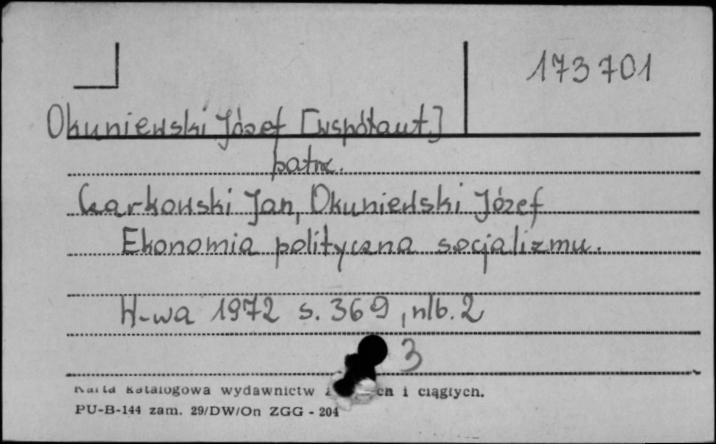 173701
Okuniewski Józef [współaut.]
patrz.
Czarkowski Jan, Okuniewski Józef
Ekonomia polityczna socjalizmu.
W-wa 1972 s. 369, nlb. 2
3
Karta katalogowa wydawnictw i ciągłych.
PU-B-144 zam. 29/DW/On ZGG - 204